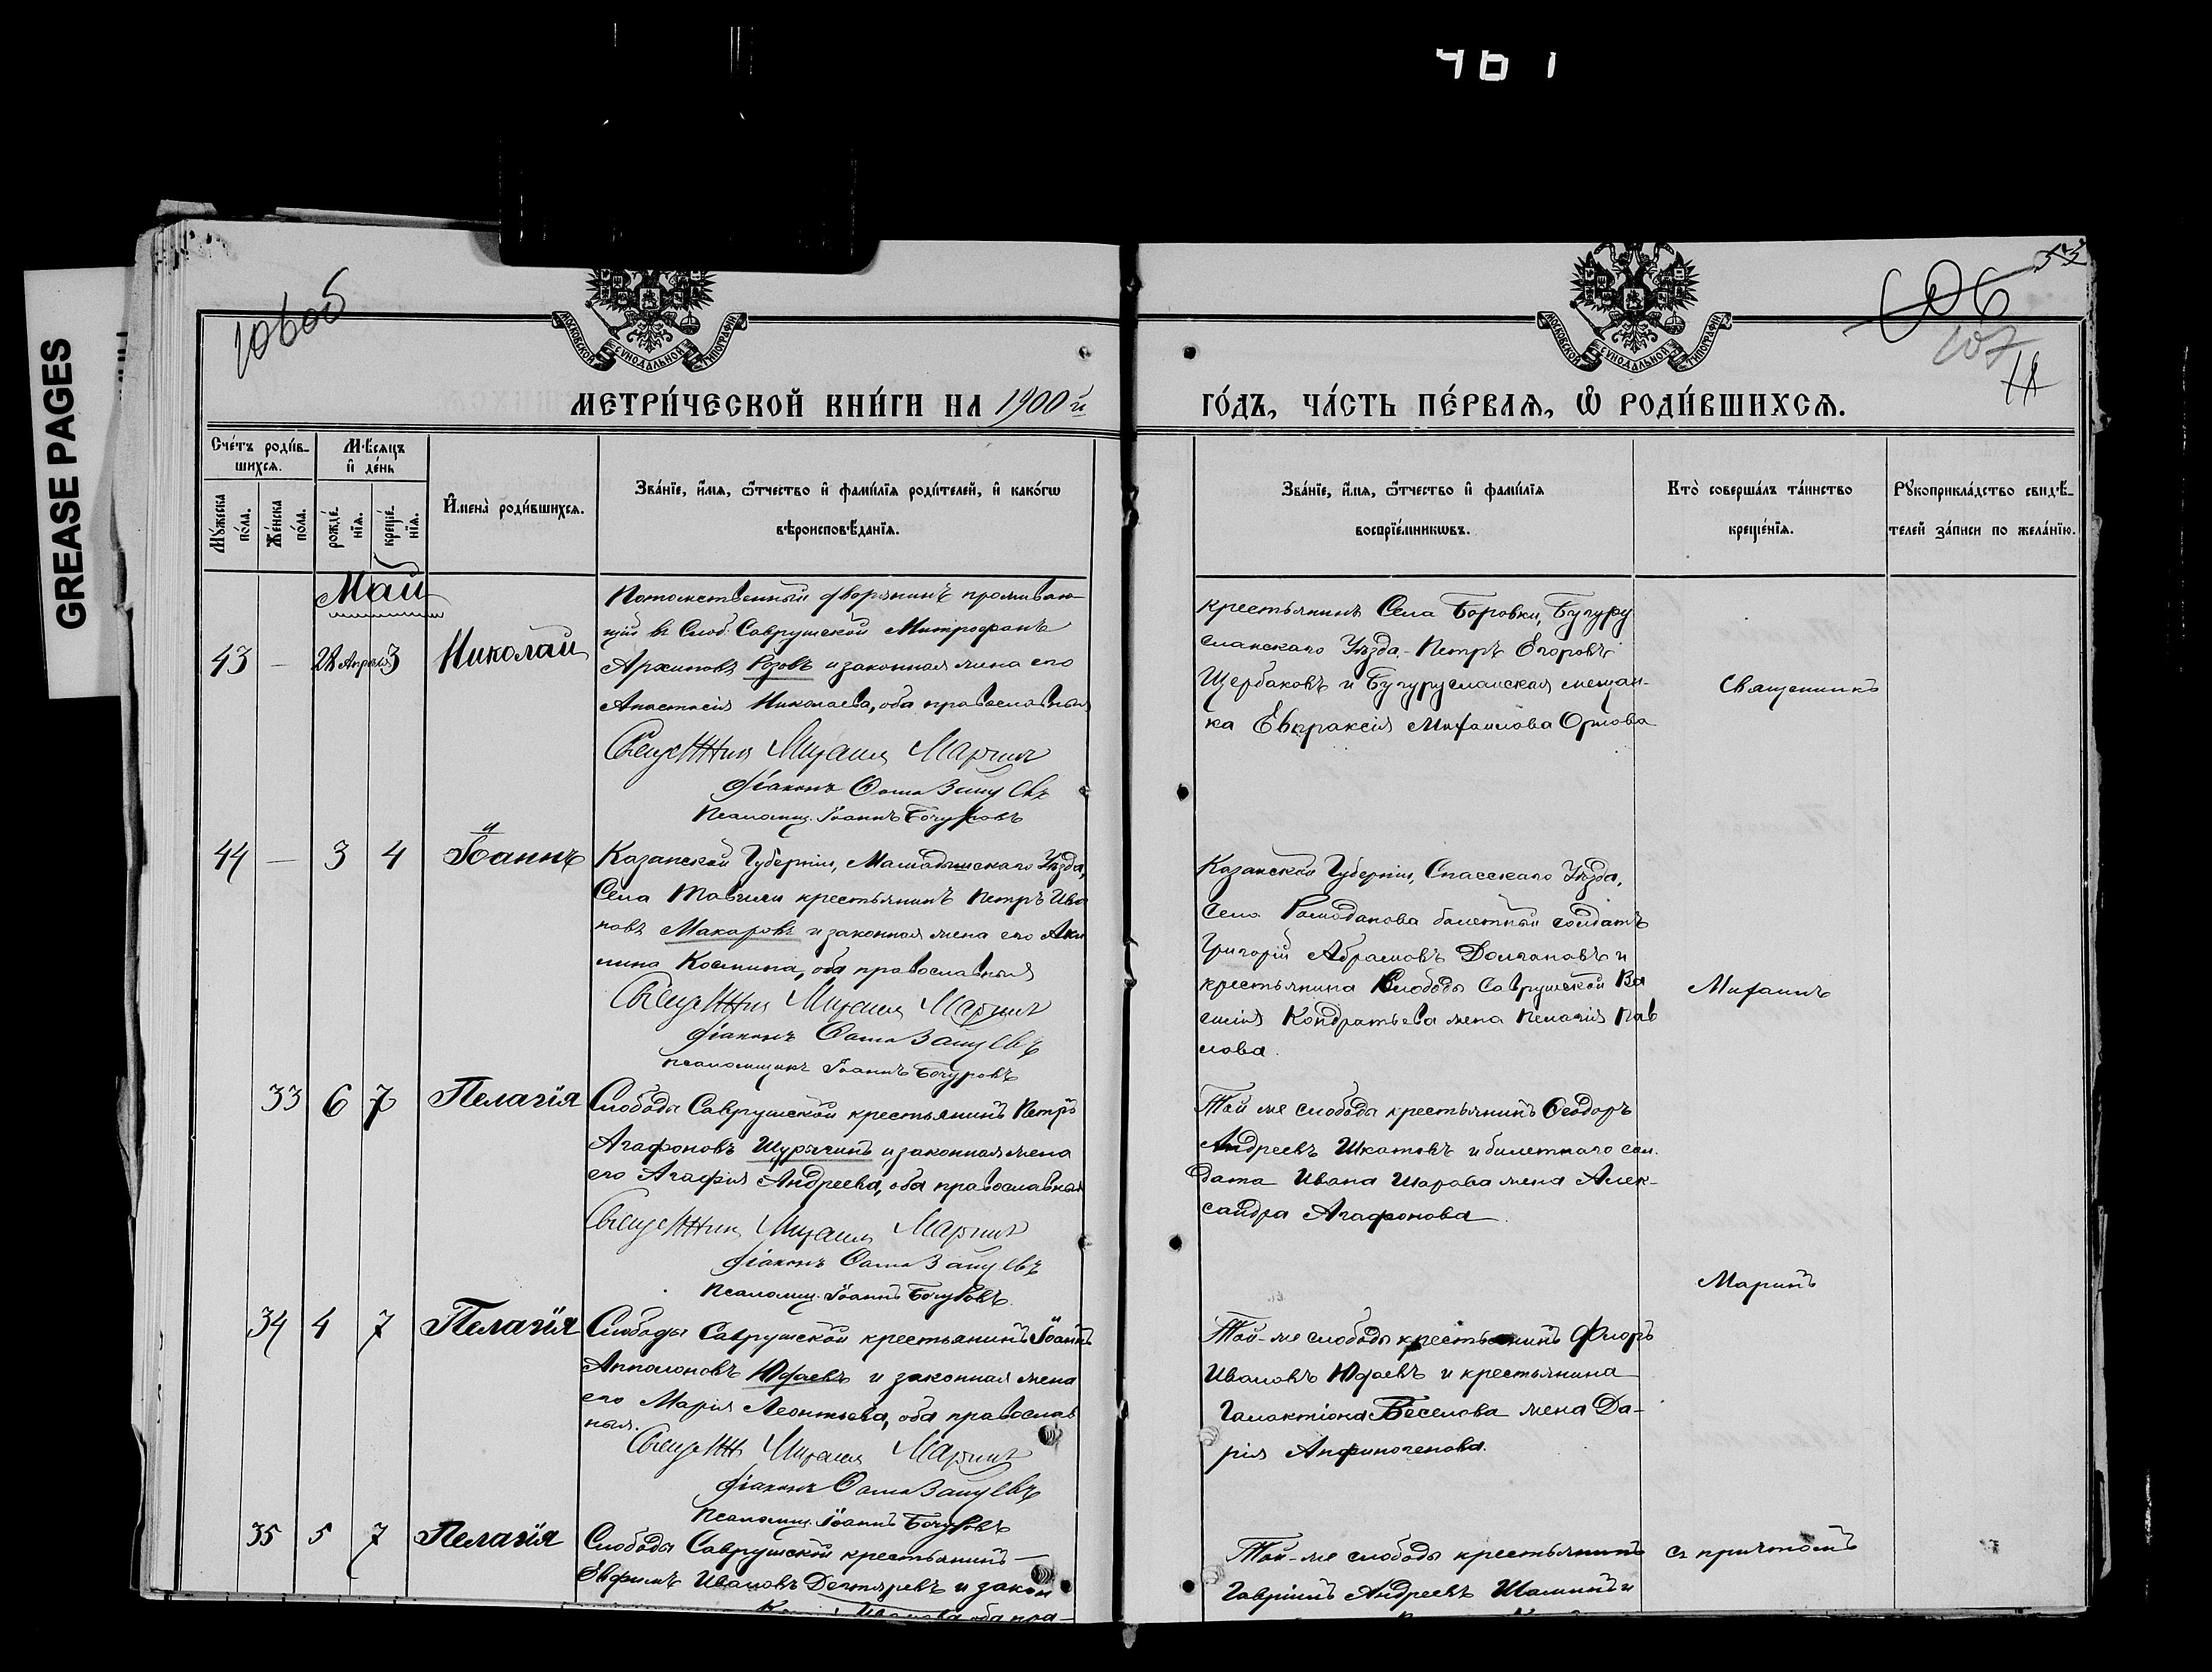 461
GREASE PAGES
53
106об
106
107
МОСКОВСКОЙ СѴНОДАЛЬНОЙ ТИПОГРАФІИ
МОСКОВСКОЙ СѴНОДАЛЬНОЙ ТИПОГРАФІИ
МЕТРИ́ЧЕСКОЙ КНИ́ГИ НА 1900й ГО́ДЪ, ЧА́СТЬ ПЕ́РВАѦ, Ѽ РОДИ́ВШИХСѦ.
Сче́тъ роди́в-
шихсѧ.
Мѣ́сѧцъ
и҆ де́нь
Мꙋ́жеска по́ла.
Же́нска по́ла.
рожде́нїѧ.
креще́нїѧ.
И҆мена̀ роди́вшихсѧ.
Зва́нїе, и҆́мѧ, ѻ҆́тчество и҆ фами́лїѧ роди́телей, и҆ како́гѡ
вѣроисповѣ́данїѧ.
Зва́нїе, и҆́мѧ, ѻ҆́тчество и҆ фами́лїѧ
воспрїе́мникѡвъ.
Кто̀ соверша́лъ та́инство
креще́нїѧ.
Рꙋкоприкла́дство свидѣ́-
телей за́писи по жела́нїю.
Май
43 — 28 Апреля 3 Николай
Потомственный дворянинъ проживаю-
щій въ Слоб. Саврушской Митрофанъ
Архиповъ Розовъ и законная жена его
Анастасія Николаева, оба православныя
Священникъ Михаилъ Маринъ
Діаконъ Ѳома Зайцевъ
Псаломщ. Іоаннъ Бочуровъ
крестьянинъ Села Боровки, Бугуру
сланскаго Уѣзда - Петръ Егоровъ
Щербаковъ и Бугурусланская мещан-
ка Евпраксія Михаилова Орлова
Священникъ
44 — 3 4 Іоаннъ
Казанской Губерніи, Мамадышскаго Уѣзда,
Села крестьянинъ Петръ Ива
новъ Макаровъ и законная жена его Аки
лина Космина, оба православныя
Священникъ Михаилъ Маринъ
Діаконъ Ѳома Зайцевъ
псаломщикъ Іоаннъ Бочуровъ
Казанской Губерніи, Спасскаго Уѣзда,
Села Ромоданова билетный солдатъ
Григорій Абрамовъ Долгановъ и
крестьянина Слободы Саврушской Ва
силія Кондратьева жена Пелагія Пав
лова.
Михаилъ
33 6 7 Пелагія
Слободы Саврушской крестьянинъ Петръ
Агафоновъ Шурыгинъ и законная жена
его Агафія Андреева, оба православныя
Священникъ Михаилъ Маринъ
Діаконъ Ѳома Зайцевъ
Псаломщ. Іоаннъ Бочуровъ.
Той же слободы крестьянинъ Ѳеодоръ
Андреевъ Шкатовъ и билетнаго сол-
дата Ивана Шарова жена Алек-
сандра Агафонова.
Маринъ
34 4 7 Пелагія
Слободы Саврушской крестьянинъ Іоаннъ
Апполоновъ Юфаевъ и законная жена
его Марія Леонтьева, оба православ
ныя.
Священн Михаилъ Маринъ
Діаконъ Ѳома Зайцевъ
Псаломщ. Іоаннъ Бочуровъ
Той-же слободы крестьянинъ Флоръ
Ивановъ Юфаевъ и крестьянина
Галактіона Веселова жена Да-
рія Анфиногенова.
35 5 7 Пелагія
Слободы Саврушской крестьянинъ —
Евфимъ Ивановъ Дегтяревъ и закон
Иванова оба пра-
Той-же слободы крестьянинъ
Гавріилъ Андреевъ Шаминъ и
съ причтомъ